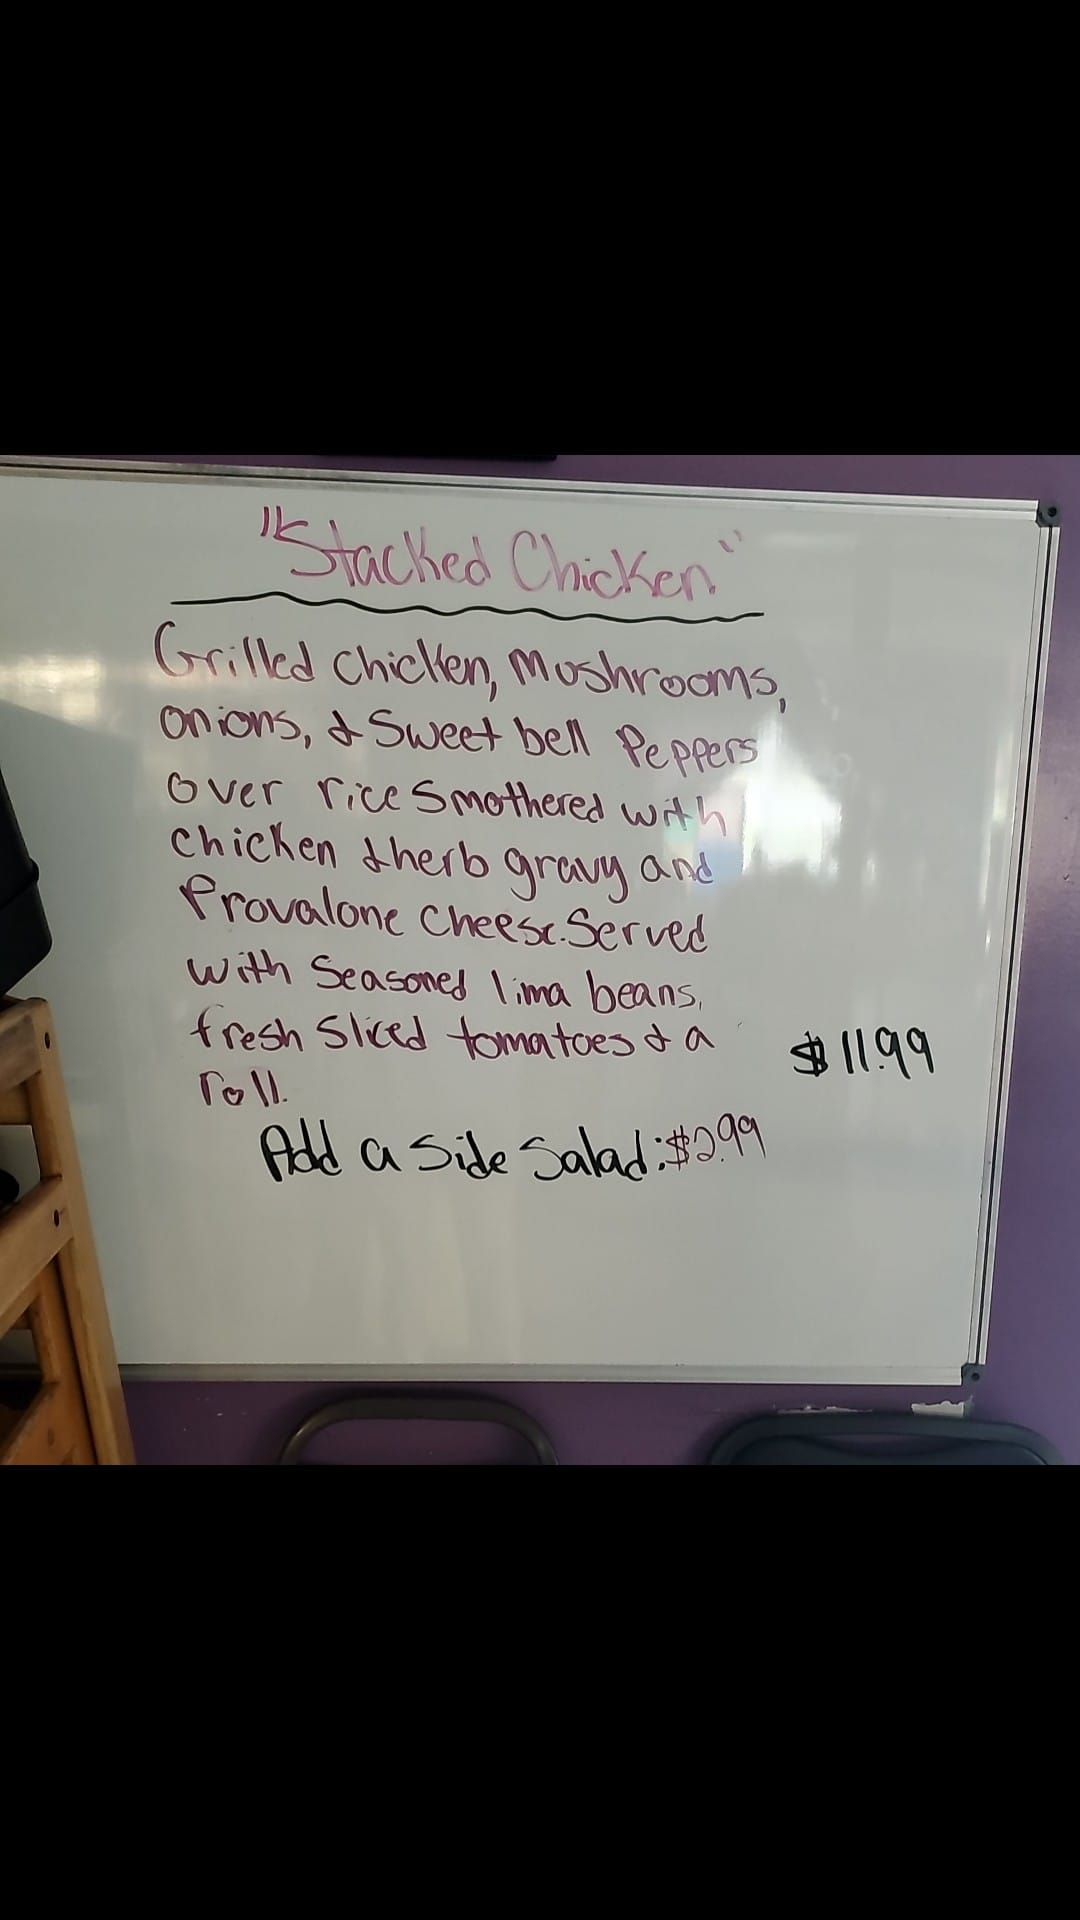 "Stacked Chicken"
Grilled chicken, Mushrooms,
onions, & Sweet bell Peppers
over rice Smothered with
chicken & herb gravy and
Provalone Cheese. Served
with Seasoned lima beans,
fresh Sliced tomatoes & a
roll.
$11.99
Add a Side Salad: $2.99